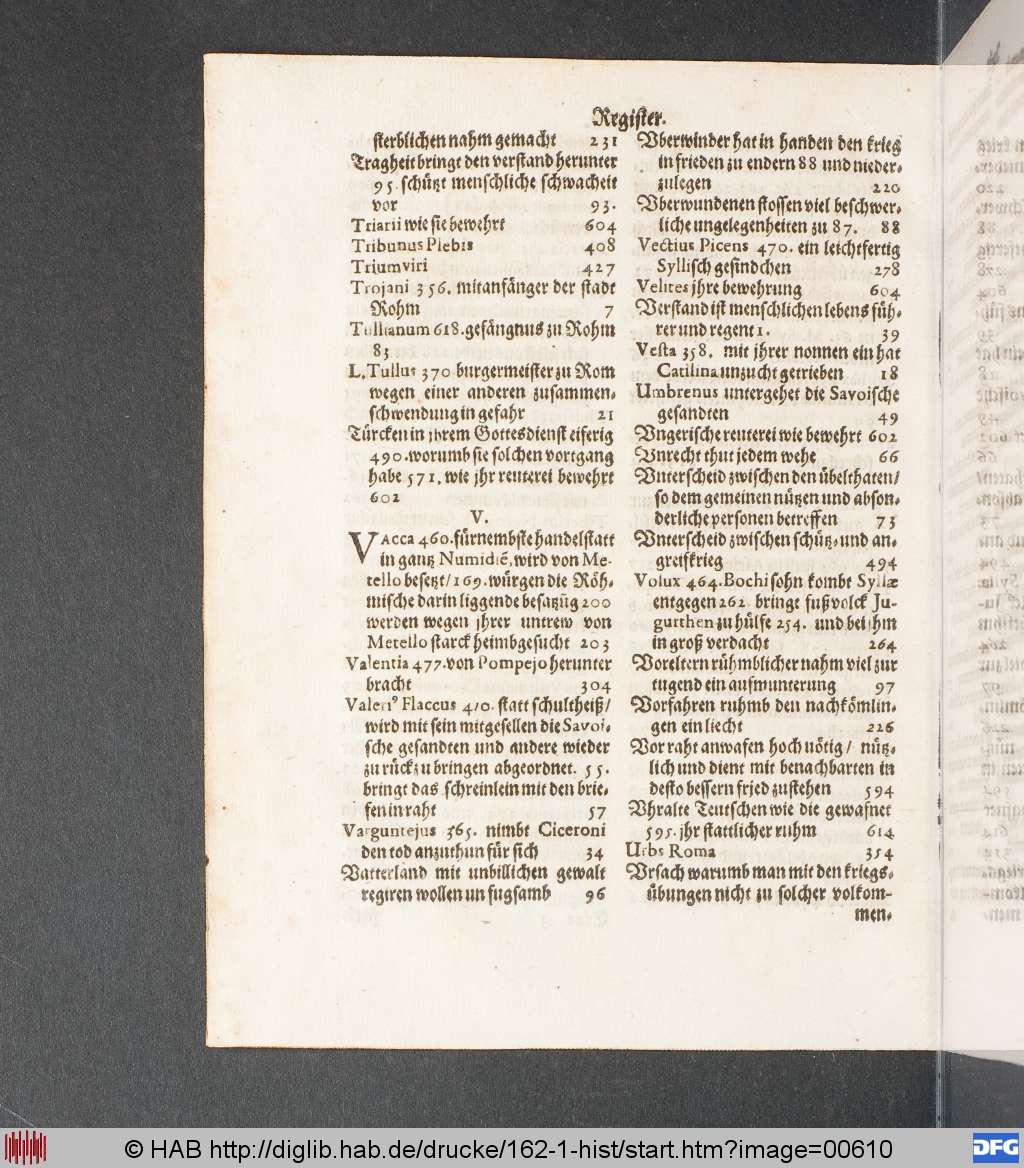 Register.
sterblichen nahm gemacht 231
Tragheit bringt den verstand herunter
95. schützt menschliche schwacheit
vor 93.
Triarii wie sie bewehrt 604
Tribunus Plebis 408
Triumviri 427
Trojani 356. mitanfänger der stadt
Rohm 7
Tullianum 618. gefängnus zu Rohm
83
L. Tullus 370 burgermeister zu Rom
wegen einer anderen zusammen-
schwendung in gefahr 21
Türcken in jhrem Gottesdienst eiferig
490. worumb sie solchen vortgang
habe 571. wie jhr reuterei bewehrt
602
V.
VAcca 460. fürnembste handelstatt
in gantz Numidiē, wird von Me-
tello besetzt/ 169. würgen die Röh-
mische darin liggende besatzūg 200
werden wegen jhrer untrew von
Metello starck heimbgesucht 203
Valentia 477. von Pompejo herunter
bracht 304
Valeriꝰ Flaccus 410. statt schultheiß/
wird mit sein mitgesellen die Savoi-
sche gesandten und andere wieder
zu rück zu bringen abgeordnet. 55.
bringt das schreinlein mit den brie-
fen in raht 57
Varguntejus 365. nimbt Ciceroni
den tod anzuthun für sich 34
Vatterland mit unbillichen gewalt
regiren wollen unfugsamb 96
Vberwinder hat in handen den krieg
in frieden zu endern 88 und nieder-
zulegen 220
Vberwundenen stossen viel beschwer-
liche ungelegenheiten zu 87. 88
Vectius Picens 470. ein leichtfertig
Syllisch gesindchen 278
Velites jhre bewehrung 604
Verstand ist menschlichen lebens füh-
rer und regent 1. 39
Vesta 358. mit jhrer nonnen ein hat
Catilina unzucht getrieben 18
Umbrenus untergehet die Savoische
gesandten 49
Vngerische reuterei wie bewehrt 602
Vnrecht thut jedem wehe 66
Vnterscheid zwischen den übelthaten/
so dem gemeinen nützen und abson-
derliche personen betreffen 73
Vnterscheid zwischen schütz- und an-
greifkrieg 494
Volux 464. Bochi sohn kombt Syllæ
entgegen 262 bringe fußvolck Ju-
gurthen zu hülfe 254. und bei jhm
in groß verdacht 264
Voreltern rühmblicher nahm viel zur
tugend ein aufmunterung 97
Vorfahren ruhmb den nachkömlin-
gen ein liecht 226
Vor raht an wafen hoch nötig/ nütz-
lich und dient mit benachbarten in
desto bessern fried zustehen 594
Vhralte Teutschen wie die gewafnet
595. jhr stattlicher ruhm 614
Urbs Roma 354
Vrsach warumb man mit den kriegs-
übungen nicht zu solcher volkom-
men-
© HAB http://diglib.hab.de/drucke/162-1-hist/start.htm?image=00610
DFG